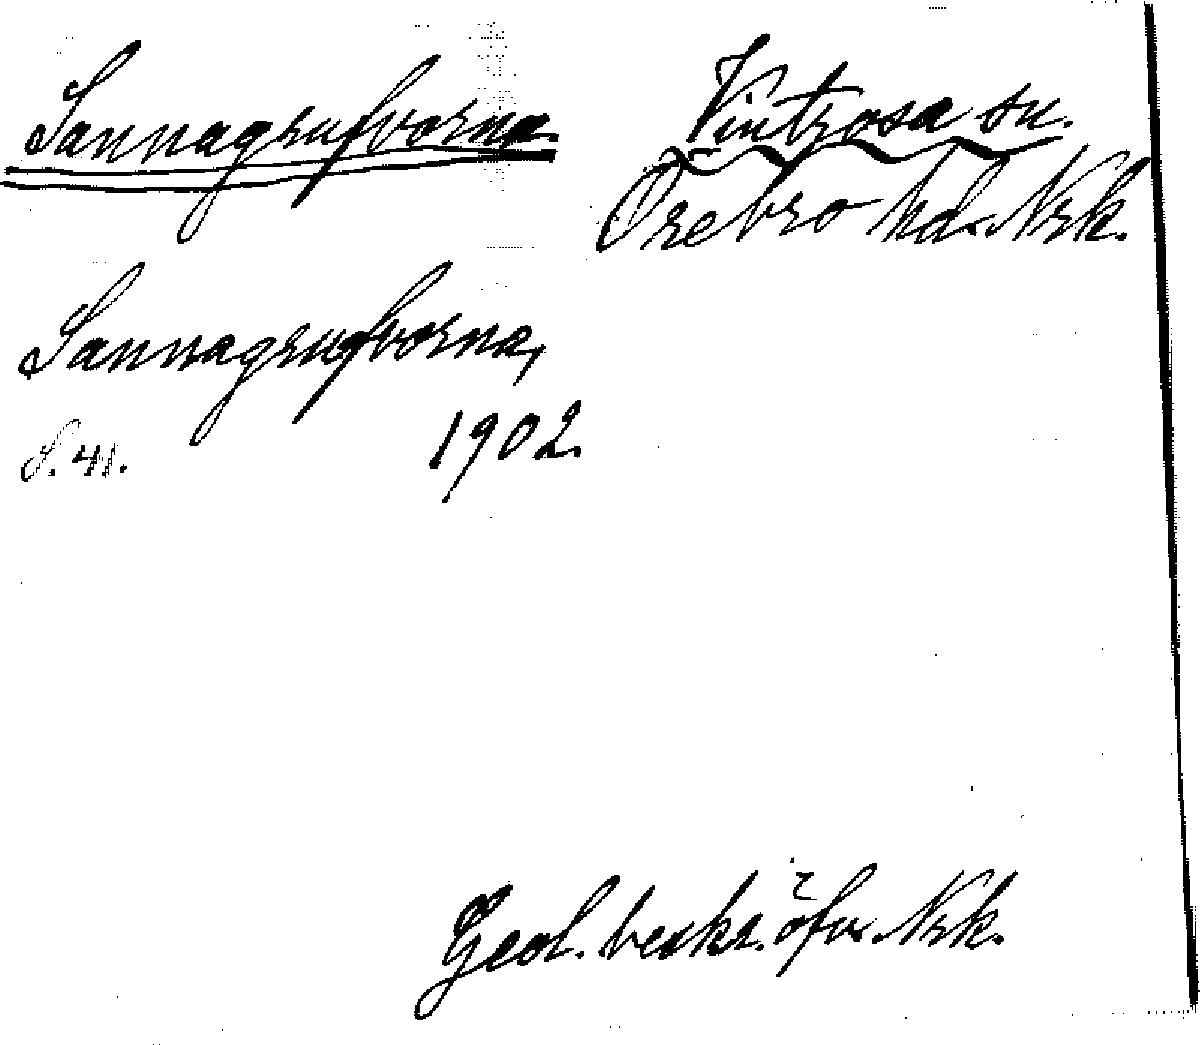 Sannagrufvorna.
Vintrosa sn.
Örebro hd. Nrk.
Sannagrufvorna,
S. 41. 1902.
Geol. beskr. öfv. Nrk.